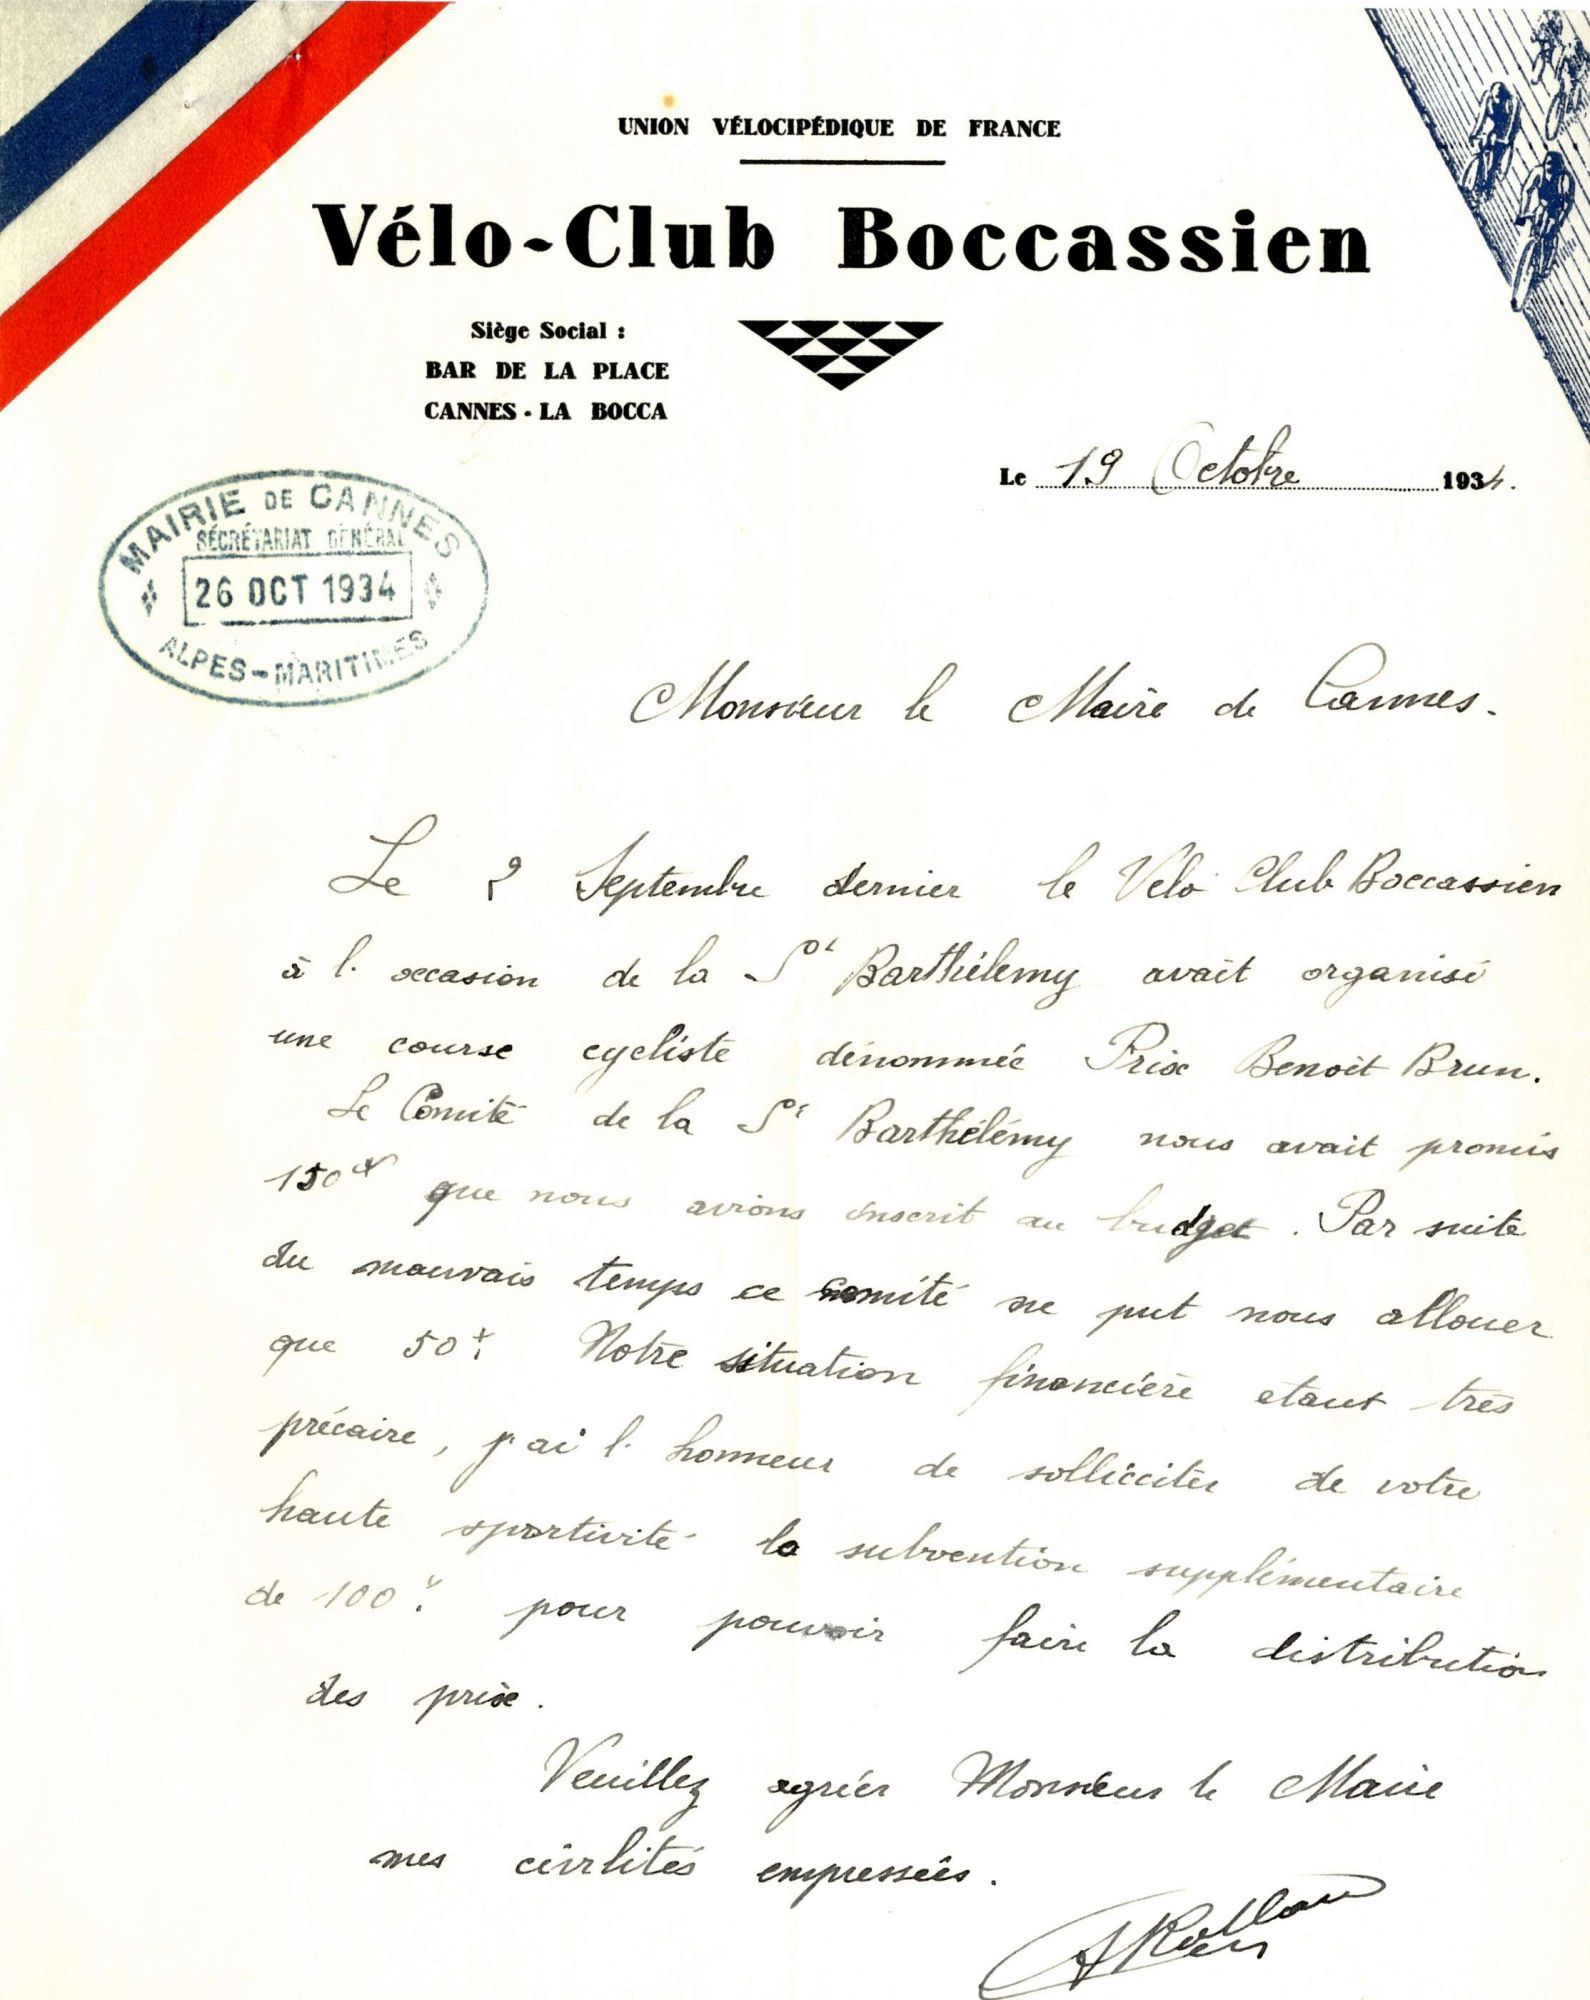 UNION VÉLOCIPÉDIQUE DE FRANCE
Vélo-Club Boccassien
Siège Social :
BAR DE LA PLACE
CANNES - LA BOCCA
Le 19 Octobre 1934.
MAIRIE DE CANNES
SECRÉTARIAT GÉNÉRAL
26 OCT 1934
ALPES-MARITIMES
Monsieur le Maire de Cannes.
Le 2 Septembre dernier le Vélo Club Boccassien
à l'occasion de la St Barthélemy avait organisé
une course cycliste dénommée Prix Benoit Brun.
Le Comité de la St Barthélémy nous avait promis
150f que nous avions inscrit au budget. Par suite
du mauvais temps ce comité ne put nous allouer
que 50f. Notre situation financière étant très
précaire, j'ai l'honneur de solliciter de votre
haute sportivité la subvention supplémentaire
de 100f. pour pouvoir faire la distribution
des prix.
Veuillez agréer Monsieur le Maire
mes civilités empressées.